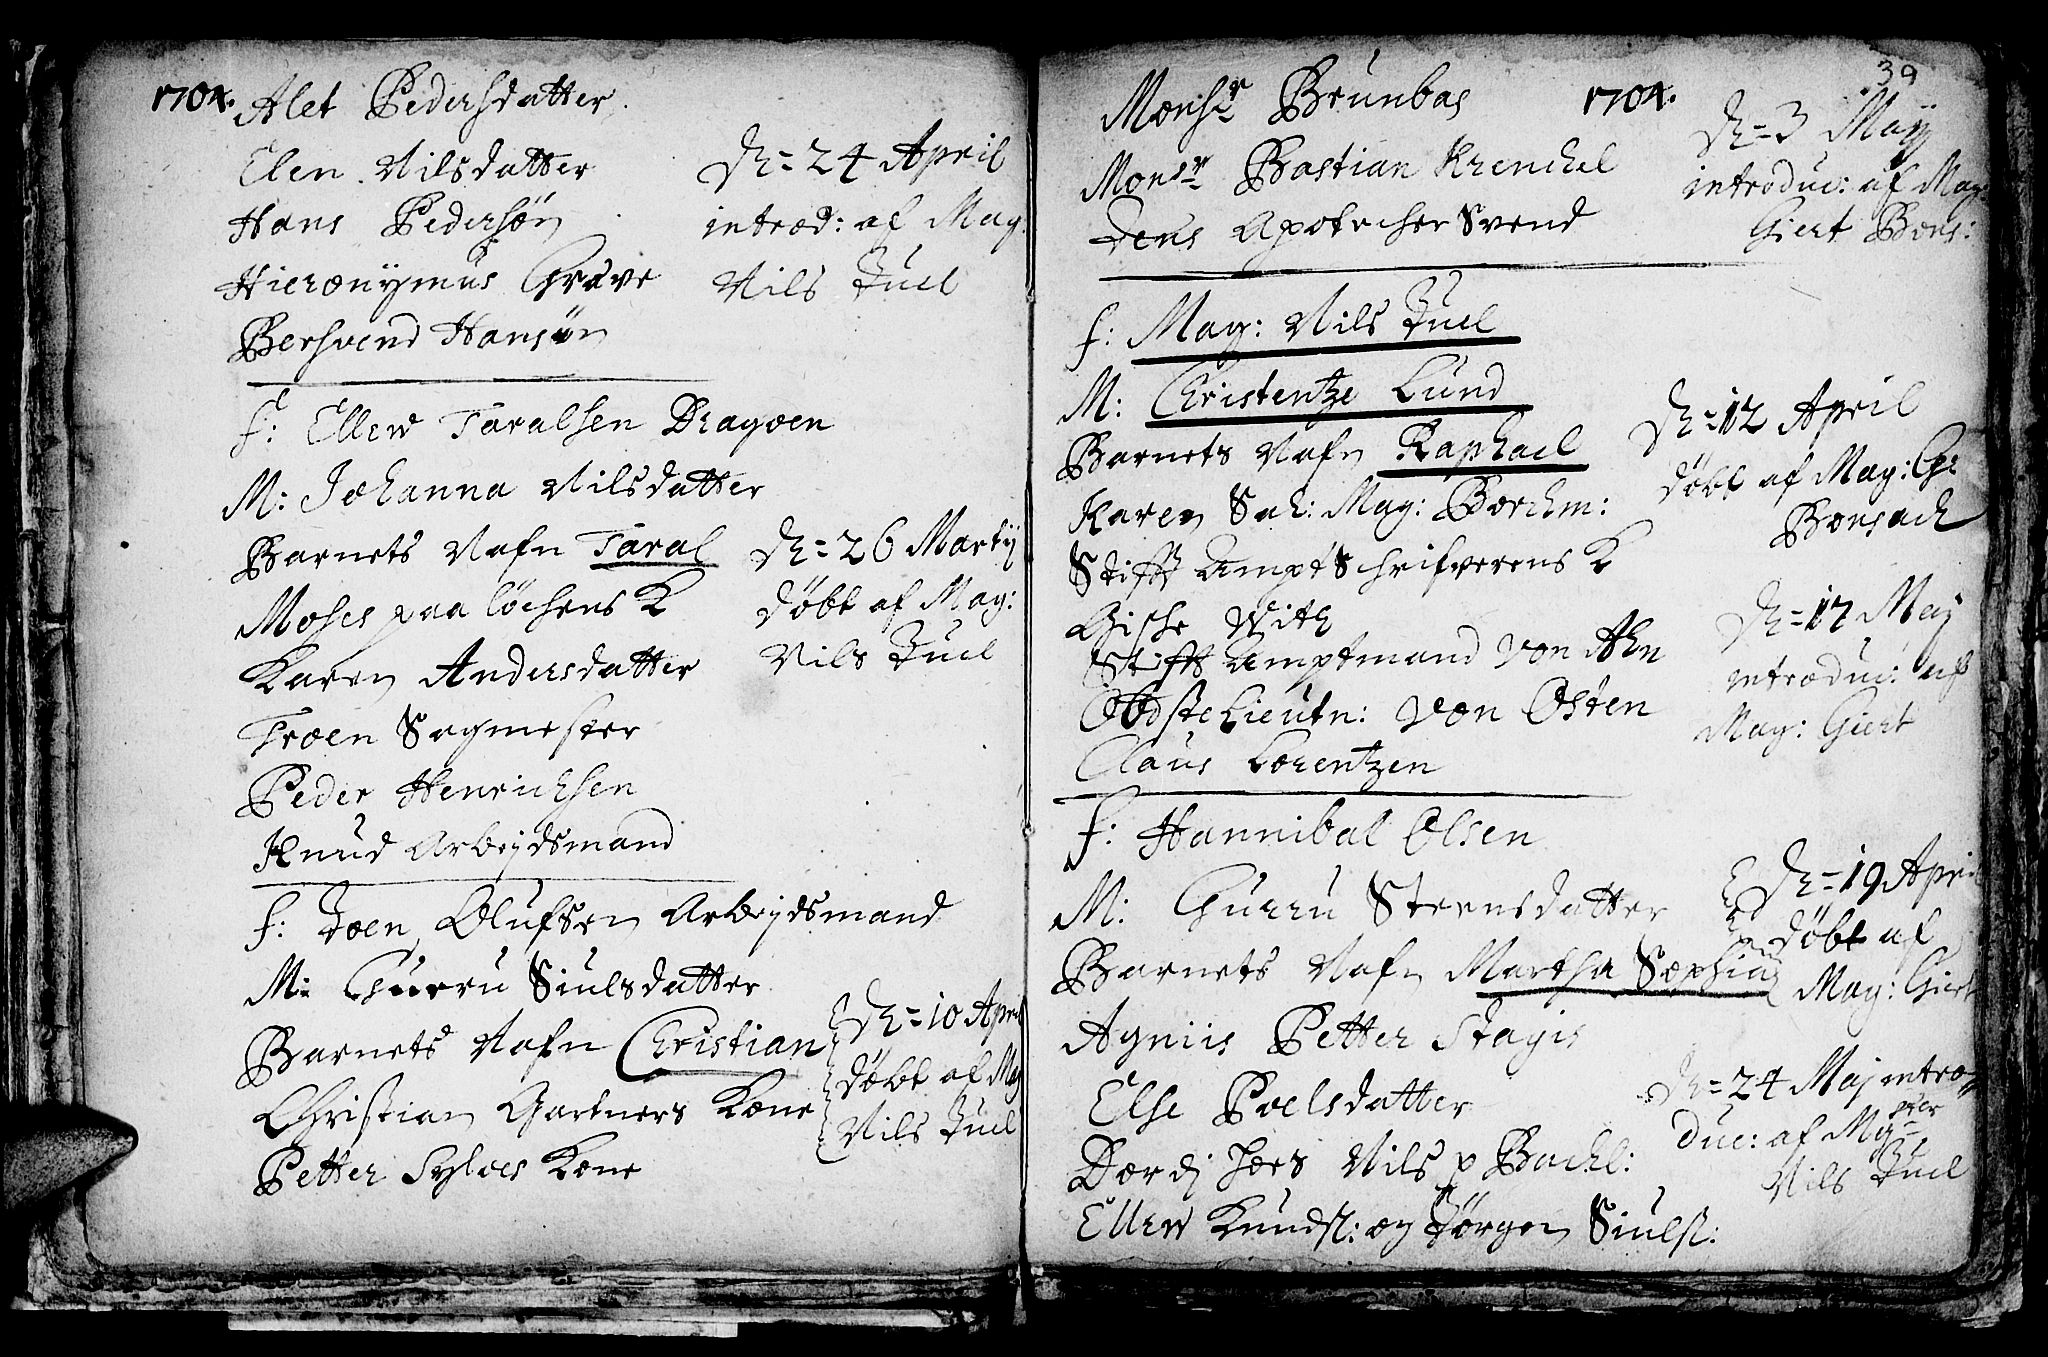 1704.
Alet Pedersdatter
Elen Nilsdatter
Hans Pedersøn
Hieronÿmus Grave
Bersvend Hansøn
D = 24 April
introd: af Mag.
Nils Juel
f: Ellew Taralsen Dragoen
M: Johanna Nilsdatter
Barnets Nafn Taral
Moses paa Løchens K
Karen Andersdatter
Troen Sagmester
Peder Henrichsen
Knud Arbeÿdsmand
D = 26 Martÿ
døbt af Mag:
Nils Juel
f: Joen Olufsen Arbeÿdsmand
M: Gurru Siulsdatter
Barnets Nafn Christian
Christian Gartners Kone
Petter Sylves Kone
D = 10 April
døbt af Mag
Nils Juel
39
1704.
Monsr Brunbas
Monsr Bastian Krenchel
Dens Apotecher Svend
D = 3 Maÿ
introduc: af Mag:
Giert Bons:
f: Mag: Nils Juel
M: Christentze Lund
Barnets Nafn Raphael
Karen Sal: Mag: Borchm:
Stifft AmptSchrifverens K
Gische With
Stiffts Amptmand von Ahn
Obbste Lieutn: von Osten
Claus Lorentzen
D = 12 April
døbt af Mag: Gi
Bonsach
D = 17 Maÿ
introduc: af
Mag: Giert
f: Hannibal Olsen
M: Gurru Steensdatter
Barnets Nafn Martha Sophia
Agniis Petter Stagis
Else Poelsdatter
Dordj Joers Nils p Bachl:
Ellew Knudsl: og Jørgen Siulsl:
D = 19 April
døbt af
Mag: Giert
D = 24 Maj intro
duc: af Mgster
Nils Juel